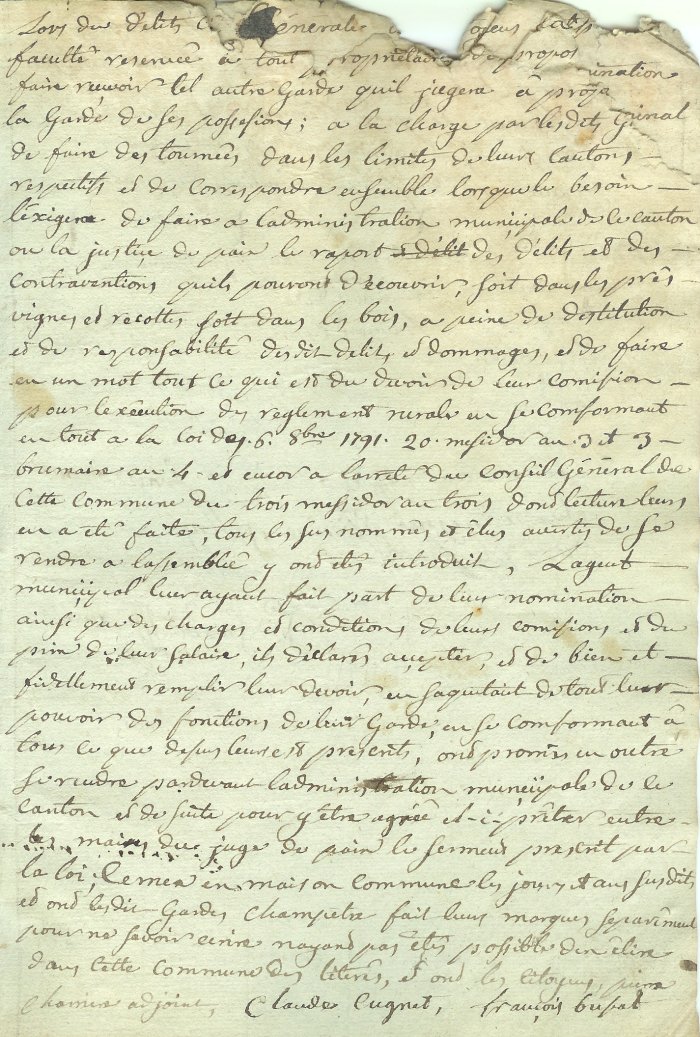 Lors du délits Générale
faculté reservée à tout propriétaire de propos ination
faire recevoir tel autre Garde quil jugera à propo
la Garde de ses possesions; a la charge par lesdits
de faire des tournées dans les limites de leurs cantons
respectifs et de correspondre ensemble lorsque le besoin
lexigera de faire a ladministration municipale de ce canton
ou la justice de paix le raport et délit des délits et des
contraventions quils pouront découvrir, soit dans les prés
vignes et recoltes soit dans les bois, a peine de destitution
et de responsabilité desdit delits et dommages, et de faire
en un mot tout ce qui est du devoir de leur comision
pour lexécution des reglement rurale en se comformant
en tout a la loi des 6. 8bre 1791. 20. mesidor an 3 et 3
brumaire an 4 et encor a larrêté du Conseil Général de
Cette Commune du trois messidor an trois dont lecture leurs
en a été faite, tous les sus nommés et élus avertis de se
rendre a lassemblée y ont étés introduit, Lagent
municipal leur ayant fait part de leur nomination
ainsi que des charges et conditions de leurs comisions et du
prix de leur salaire, ils déclarés accepter, et de bien et
fidellement remplir leur devoir, en saquitait de tout leur
pouvoir des fonctions de leur Garde, en se comformant à
tous ce que desus leurs est prescrits, ont promis en outre
se rendre pardevant ladministration municipale de ce
canton et de suite pour y être agréé et-i-prêter entre
les mains du juge de paix le serment prescrit par
la loi, en maison commune les jours et ans susdits
et ont lesdit Gardes champetre fait leurs marques séparément
pour ne savoir écrire nayant pas étés possible den élire
dans cette commune des litérés, et ont les citoyens, pierre
adjoint, Claude Cugnet, françois